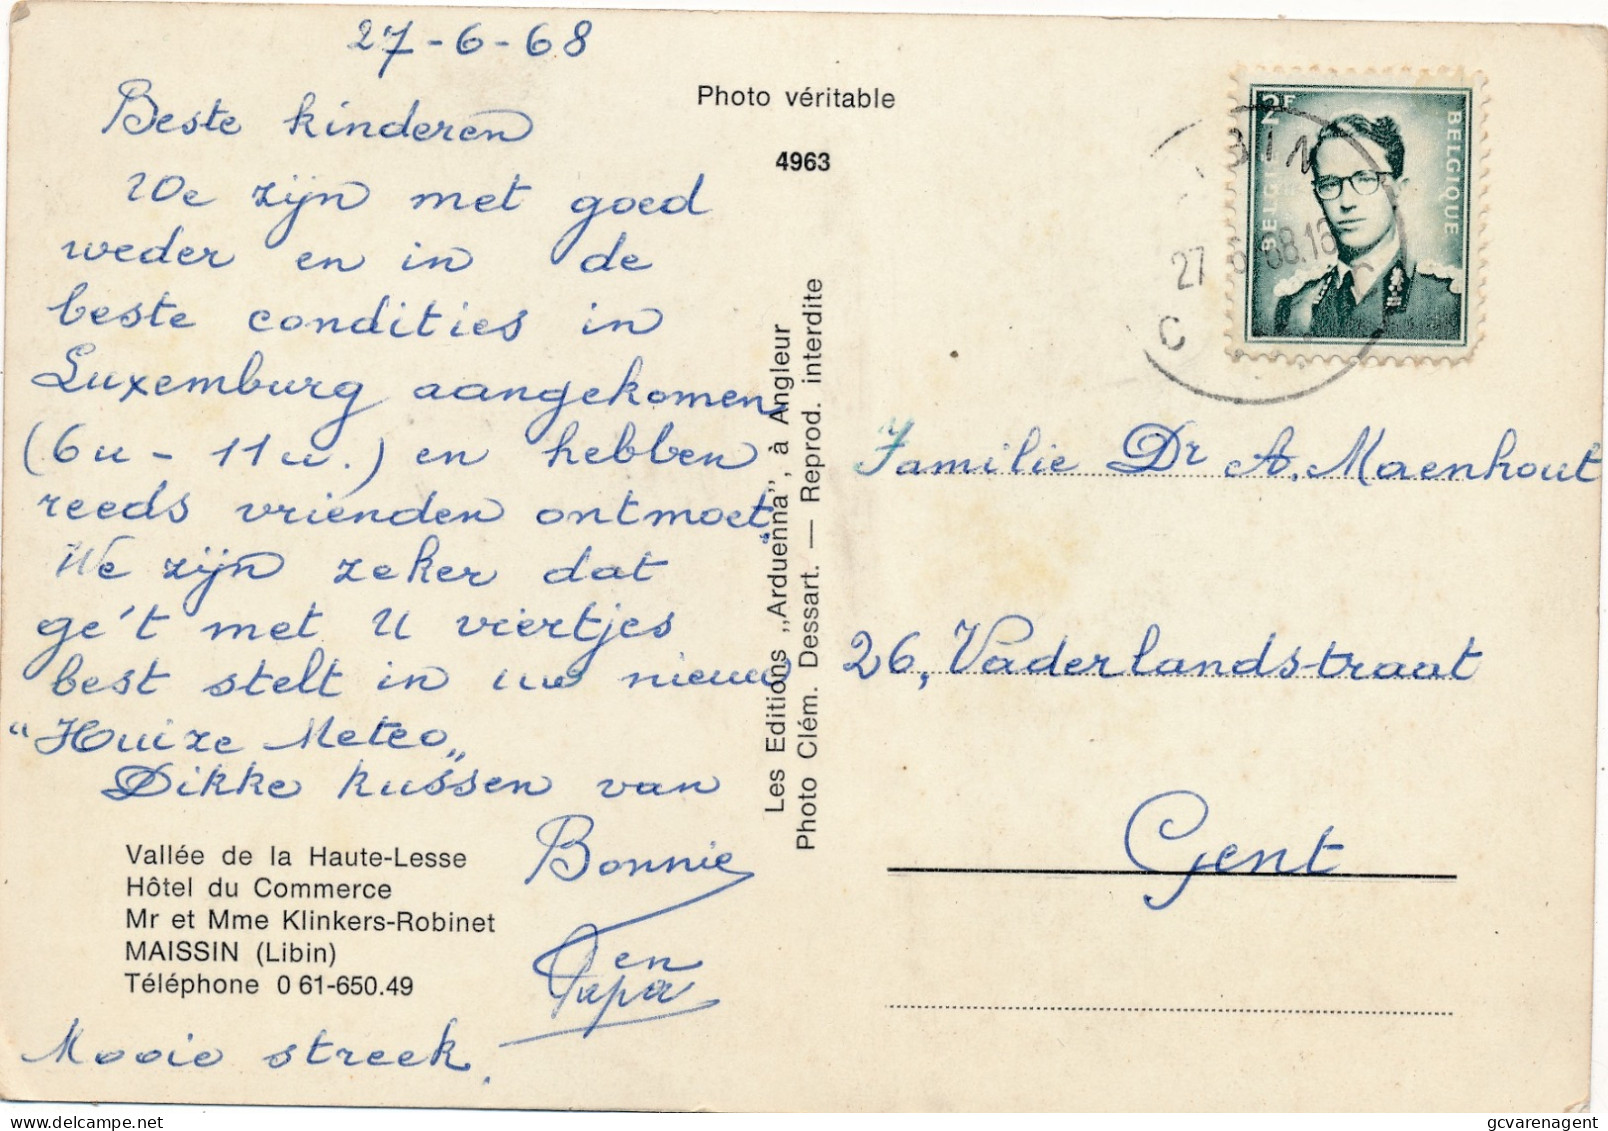 27-6-68
Beste kinderen
We zijn met goed
weder en in de
beste condities in
Luxemburg aangekomen
(6u - 11u.) en hebben
reeds vrienden ontmoet.
We zijn zeker dat
ge't met U viertjes
best stelt in uw nieuw
"Huize Meteo"
Dikke kussen van
Bonnie
en
Papa
Vallée de la Haute-Lesse
Hôtel du Commerce
Mr et Mme Klinkers-Robinet
MAISSIN (Libin)
Téléphone 0 61-650.49
Mooie streek.
Photo véritable
4963
Les Editions „Arduenna”, à Angleur
Photo Clém. Dessart. — Reprod. interdite
2F
BELGIË
BELGIQUE
27 6 68.16
C
Familie Dr A. Maenhout
26, Vaderlandstraat
Gent
gcvarenagent